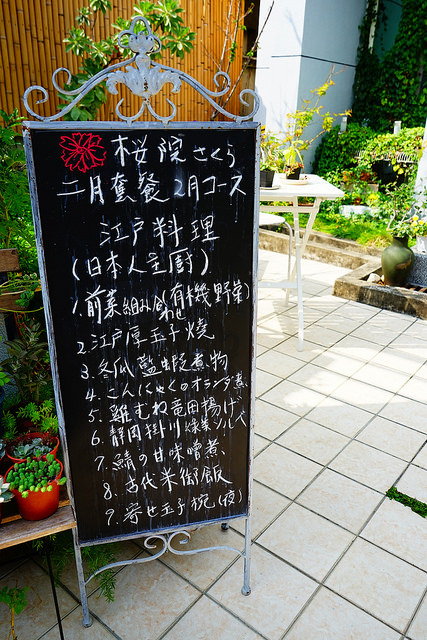 桜院さくら
二月套餐 2月コース
江戸料理
(日本人主厨)
1.前菜組み合わせ(有機野菜)
2.江戸厚玉子焼
3.冬瓜藍蝦煮物
4.こんにゃくのオランダ煮
5.鶏むね竜田揚げ
6.静岡掛川緑茶ソルベ
7.鯖の甘味噌煮
8.古代米御飯
9.寄せ玉子椀(夜)